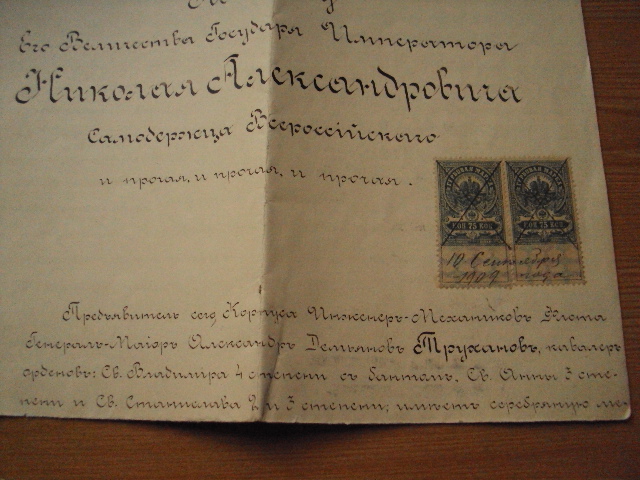 Его Величества Государя Императора
Николая Александровича
Самодержца Всероссійскаго
и прочая, и прочая, и прочая.
КОП 75 КОП
КОП 75 КОП
10 Сентября
1909 года
Предъявитель сего Корпуса Инженеръ-Механиковъ Флота
Генералъ-Маіоръ Александръ Демьяновъ Трухановъ, кавалеръ
орденовъ: Св. Владиміра 4 степени съ бантомъ, Св. Анны 3 сте-
пени и Св. Станислава 2 и 3 степени; имѣетъ серебряную ме-